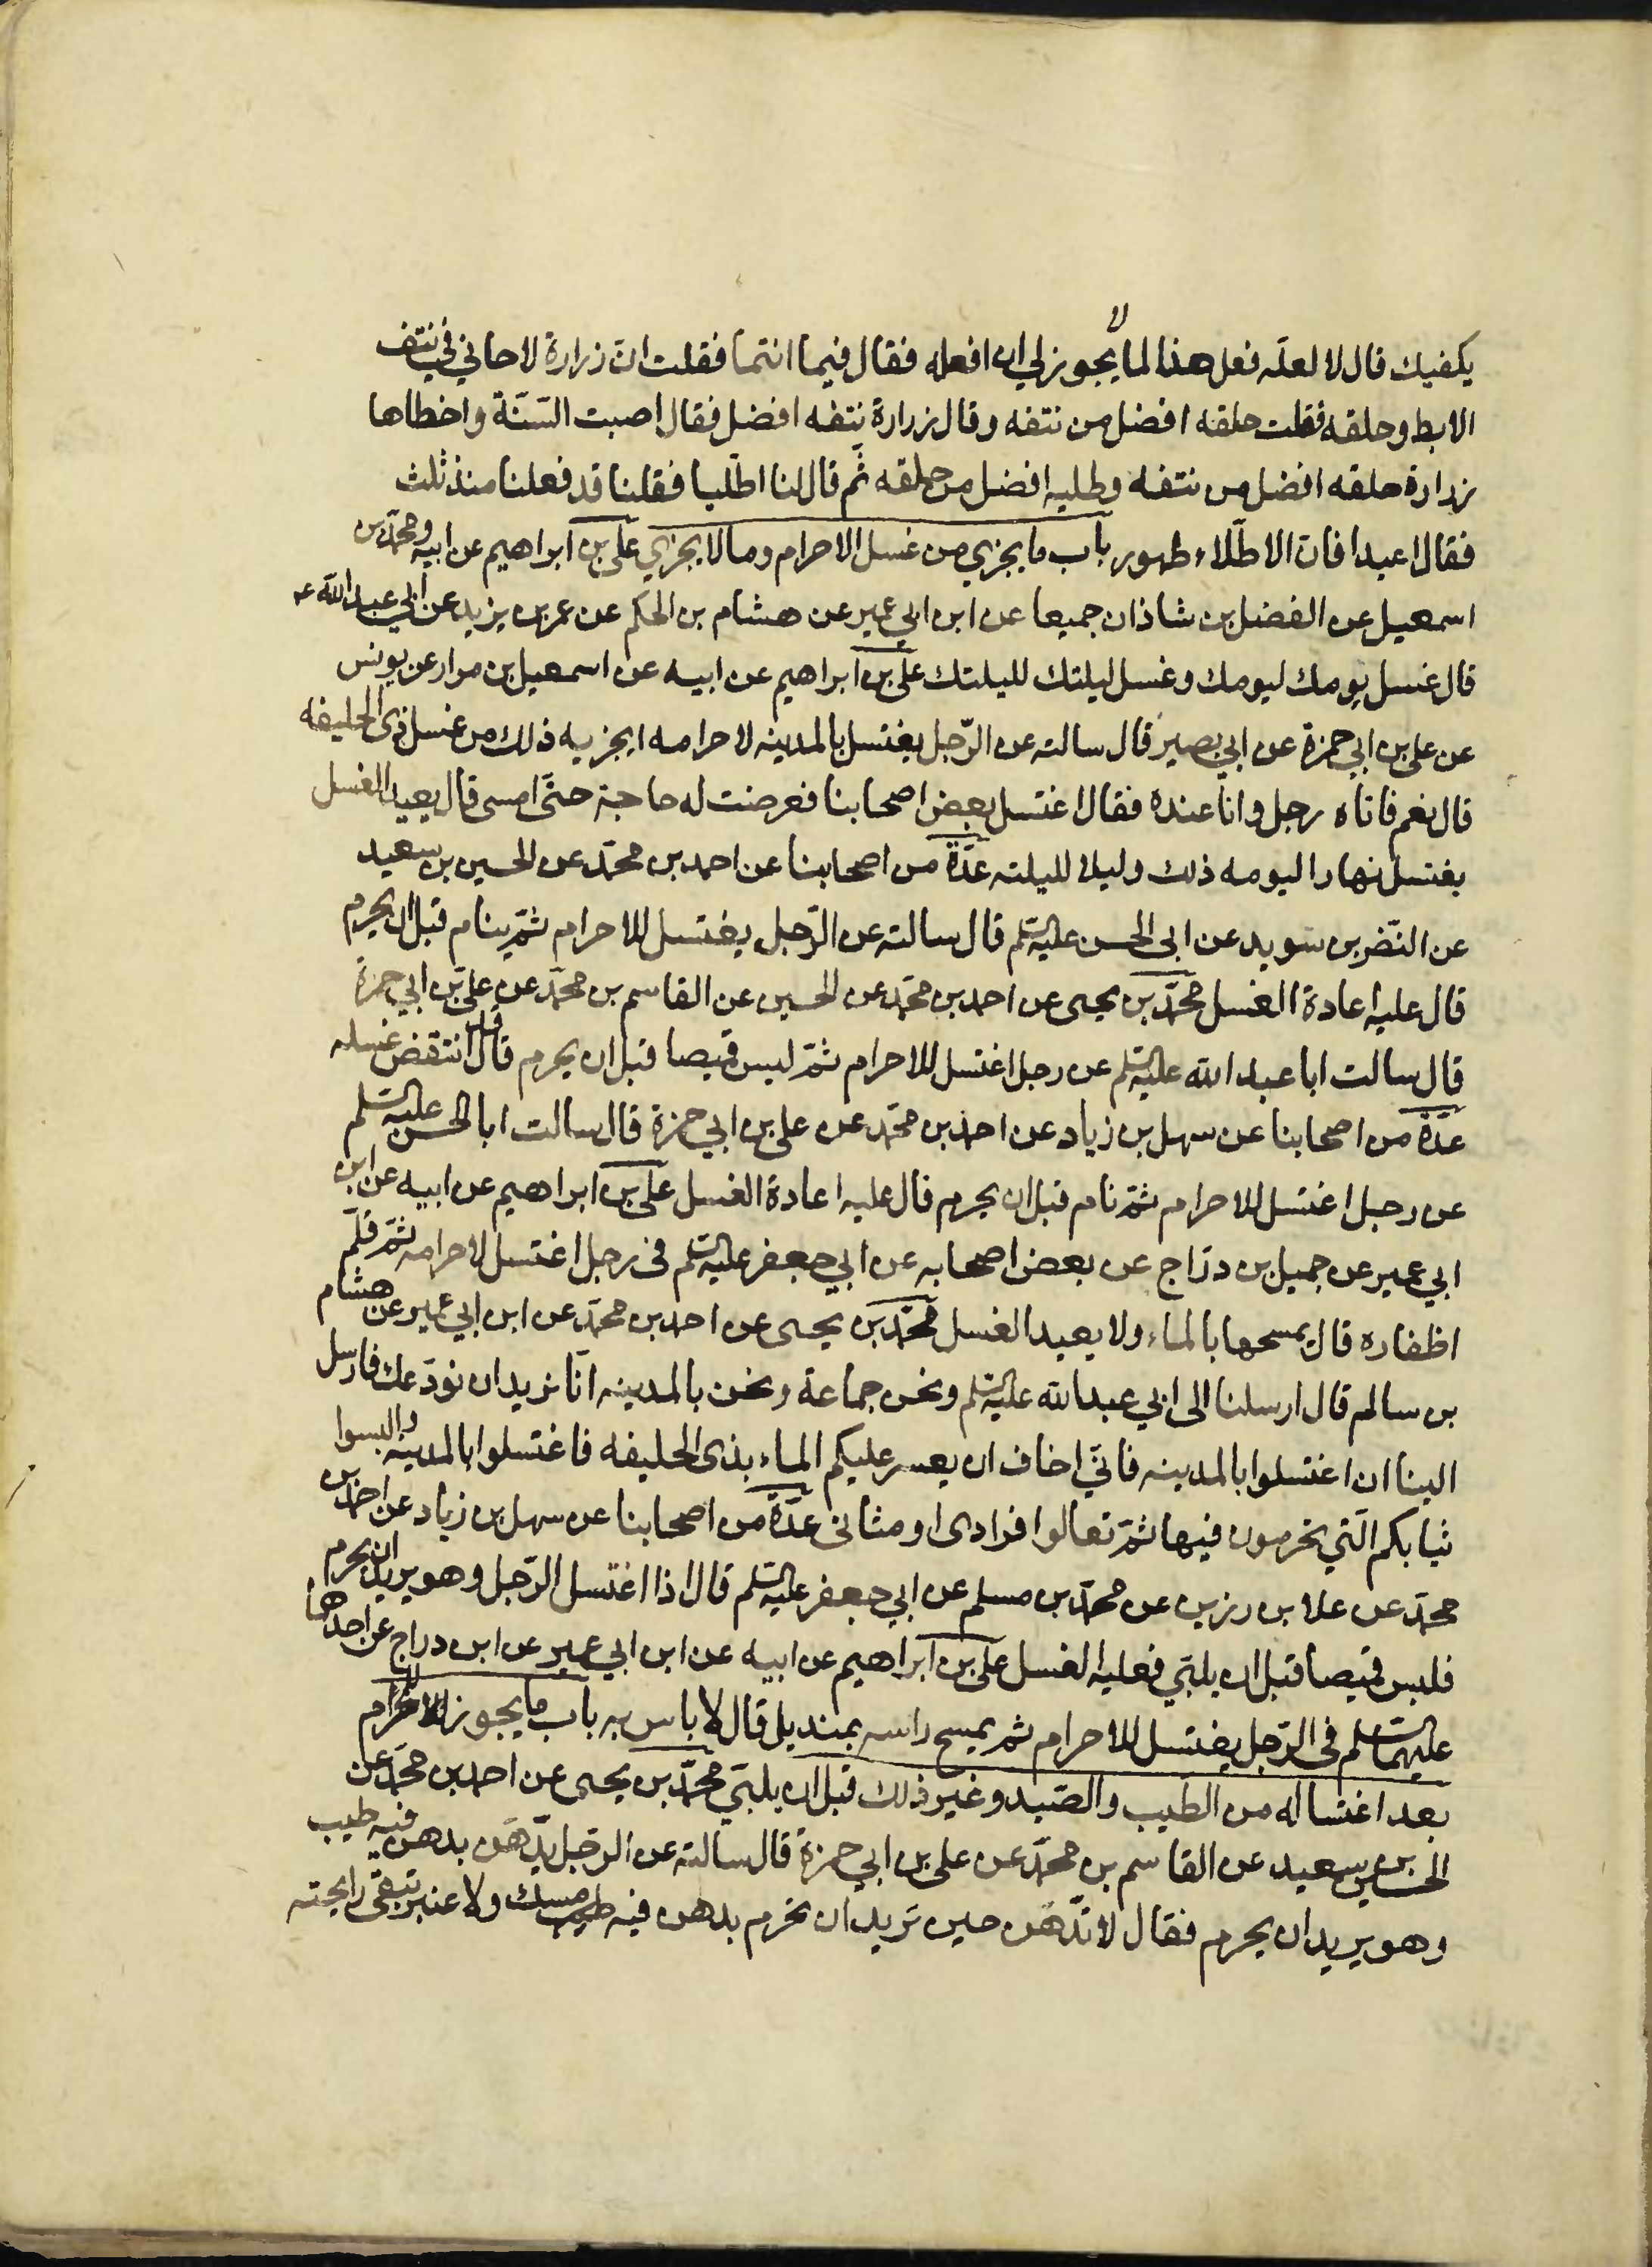 يكفيك قال لا لعله فعل هذا لما لا يجوز لي ان افعله فقال فيما انتما فقلت انّ زرارة لاحاني في نتف
الابط وحلقه فقلت حلقه افضل من نتفه وقال زرارة نتفه افضل فقال اصبت السّنّة واخطاها
زرارة حلقه افضل من نتفه وطليه افضل من حلقه ثمّ قال لنا اطّليا فقلنا قد فعلنا منذ ثلث
فقال اعيدا فان الاطّلاء طهور باب ما يجزي من غسل الاحرام وما لا يجزي علي بن ابراهيم عن ابيه ومحمّد بن
اسمعيل عن الفضل بن شاذان جميعا عن ابن ابي عمير عن هشام بن الحكم عن عمر بن يزيد عن ابي عبد الله ع
قال غسل يومك ليومك وغسل ليلتك لليلتك علي بن ابراهيم عن ابيه عن اسمعيل بن مرار عن يونس
عن علي بن ابي حمزة عن ابي بصير قال سالته عن الرّجل يغتسل بالمدينه لاحرامه ايجزيه ذلك من غسل ذى الحليفه
قال نعم فاتاه رجل وانا عنده فقال اغتسل بعض اصحابنا فعرضت له حاجة حتّى امسى قال يعيد الغسل
يغتسل نهارا ليومه ذلك وليلا لليلته عدّة من اصحابنا عن احمد بن محمّد عن الحسين بن سعيد
عن النّضر بن سويد عن ابى الحسن عليه السّلم قال سالته عن الرّجل يغتسل للاحرام ثمّ ينام قبل ان يحرم
قال عليه اعادة الغسل محمّد بن يحيى عن احمد بن محمّد عن الحسين عن القاسم بن محمّد عن علي بن ابي حمزة
قال سالت ابا عبد الله عليه السّلم عن رجل اغتسل للاحرام ثمّ لبس قميصا قبل ان يحرم قال قد انتقض غسله
عدّة من اصحابنا عن سهل بن زياد عن احمد بن محمّد عن علي بن ابي حمزة قال سالت ابا الحسن عليه السّلم
عن رجل اغتسل للاحرام ثمّ نام قبل ان يحرم قال عليه اعادة الغسل علي بن ابراهيم عن ابيه عن ابن
ابي عمير عن جميل بن درّاج عن بعض اصحابه عن ابي جعفر عليه السّلم فى رجل اغتسل لاحرامه ثمّ قلّم
اظفاره قال يمسحها بالماء ولا يعيد الغسل محمّد بن يحيى عن احمد بن محمّد عن ابن ابي عمير عن هشام
بن سالم قال ارسلنا الى ابي عبد الله عليه السّلم ونحن جماعة ونحن بالمدينه انّا نريد ان نودّعك فارسل
الينا ان اغتسلوا بالمدينه فانّي اخاف ان يعسر عليكم الماء بذى الحليفه فاغتسلوا بالمدينه والبسوا
ثيابكم الّتي تحرمون فيها ثمّ تعالوا فرادى او مثانى عدّة من اصحابنا عن سهل بن زياد عن احمد بن
محمّد عن علا بن رزين عن محمّد بن مسلم عن ابي جعفر عليه السّلم قال اذا اغتسل الرّجل وهو يريد ان يحرم
فلبس قميصا قبل ان يلبّي فعليه الغسل علي بن ابراهيم عن ابيه عن ابن ابي عمير عن ابن دراج عن احدهما
عليهما السّلم فى الرّجل يغتسل للاحرام ثم يمسح راسه بمنديل قال لا باس به باب ما يجوز للاحرام
بعد اغتساله من الطّيب والصّيد وغير ذلك قبل ان يلبّي محمّد بن يحيى عن احمد بن محمّد عن
الحسين بن سعيد عن القاسم بن محمّد عن علي بن ابي حمزة قال سالته عن الرّجل يدّهن بدهن فيه طيب
وهو يريد ان يحرم فقال لا تدّهن حين تريد ان تحرم بدهن فيه مسك ولا عنبر تبقى رايحته